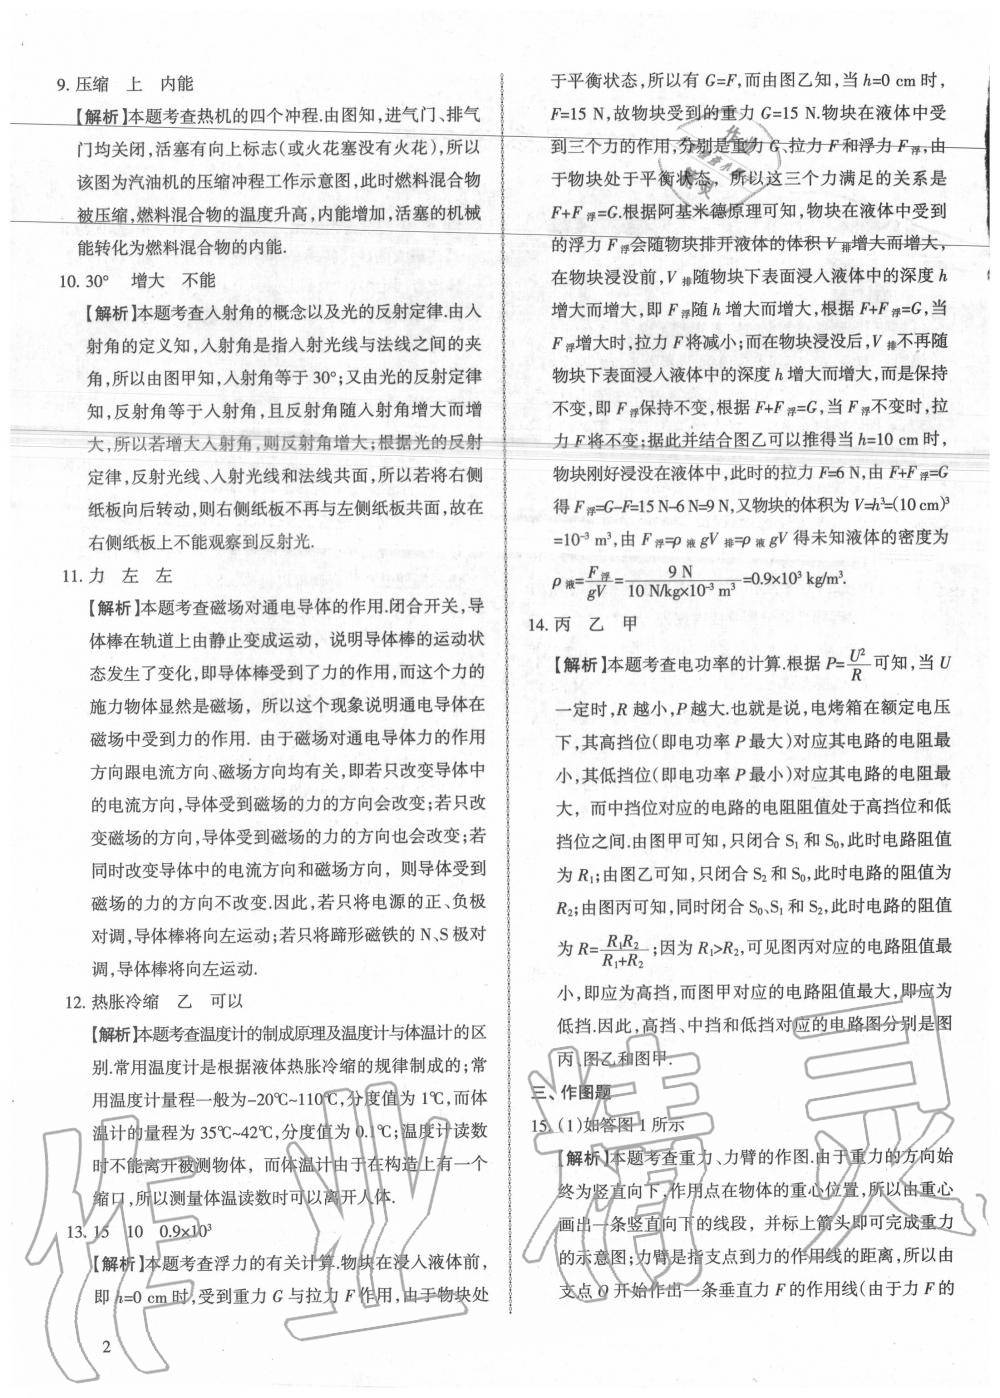 9. 压缩 上 内能
【解析】本题考查热机的四个冲程.由图知,进气门、排气
门均关闭,活塞有向上标志(或火花塞没有火花),所以
该图为汽油机的压缩冲程工作示意图,此时燃料混合物
被压缩,燃料混合物的温度升高,内能增加,活塞的机械
能转化为燃料混合物的内能.
10. 30° 增大 不能
【解析】本题考查入射角的概念以及光的反射定律.由入
射角的定义知,入射角是指入射光线与法线之间的夹
角,所以由图甲知,入射角等于30°;又由光的反射定律
知,反射角等于入射角,且反射角随入射角增大而增
大,所以若增大入射角,则反射角增大;根据光的反射
定律,反射光线、入射光线和法线共面,所以若将右侧
纸板向后转动,则右侧纸板不再与左侧纸板共面,故在
右侧纸板上不能观察到反射光.
11. 力 左 左
【解析】本题考查磁场对通电导体的作用.闭合开关,导
体棒在轨道上由静止变成运动，说明导体棒的运动状
态发生了变化,即导体棒受到了力的作用,而这个力的
施力物体显然是磁场，所以这个现象说明通电导体在
磁场中受到力的作用. 由于磁场对通电导体力的作用
方向跟电流方向、磁场方向均有关,即若只改变导体中
的电流方向,导体受到磁场的力的方向会改变;若只改
变磁场的方向,导体受到磁场的力的方向也会改变;若
同时改变导体中的电流方向和磁场方向，则导体受到
磁场的力的方向不改变.因此,若只将电源的正、负极
对调,导体棒将向左运动;若只将蹄形磁铁的N、S极对
调,导体棒将向左运动.
12. 热胀冷缩 乙 可以
【解析】本题考查温度计的制成原理及温度计与体温计的区
别.常用温度计是根据液体热胀冷缩的规律制成的;常
用温度计量程一般为-20℃~110℃,分度值为1℃,而体
温计的量程为35℃~42℃,分度值为0.1℃;温度计读数
时不能离开被测物体，而体温计由于在构造上有一个
缩口,所以测量体温读数时可以离开人体.
13. 15 10 0.9×10³
【解析】本题考查浮力的有关计算.物块在浸入液体前,
即h=0 cm时,受到重力G与拉力F作用,由于物块处
于平衡状态,所以有G=F,而由图乙知,当h=0 cm时,
F=15 N,故物块受到的重力G=15 N.物块在液体中受
到三个力的作用,分别是重力G、拉力F和浮力F浮,由
于物块处于平衡状态，所以这三个力满足的关系是
F+F浮=G.根据阿基米德原理可知,物块在液体中受到
的浮力F浮会随物块排开液体的体积V排增大而增大,
在物块浸没前,V排随物块下表面浸入液体中的深度h
增大而增大,即F浮随h增大而增大,根据F+F浮=G,当
F浮增大时,拉力F将减小;而在物块浸没后,V排不再随
物块下表面浸入液体中的深度h增大而增大,而是保持
不变,即F浮保持不变,根据F+F浮=G,当F浮不变时,拉
力F将不变;据此并结合图乙可以推得当h=10 cm时,
物块刚好浸没在液体中,此时的拉力F=6 N,由F+F浮=G
得F浮=G-F=15 N-6 N=9 N,又物块的体积为V=h³=(10 cm)³
=10⁻³ m³,由F浮=ρ液gV排=ρ液gV得未知液体的密度为
ρ液=F浮/gV=9 N/(10 N/kg×10⁻³ m³)=0.9×10³ kg/m³.
14. 丙 乙 甲
【解析】本题考查电功率的计算.根据P=U²/R可知,当U
一定时,R越小,P越大.也就是说,电烤箱在额定电压
下,其高挡位(即电功率P最大)对应其电路的电阻最
小,其低挡位(即电功率P最小)对应其电路的电阻最
大，而中挡位对应的电路的电阻阻值处于高挡位和低
挡位之间.由图甲可知,只闭合S₁和S₀,此时电路阻值
为R₁;由图乙可知,只闭合S₂和S₀,此时电路的阻值为
R₂;由图丙可知,同时闭合S₀、S₁和S₂,此时电路的阻值
为R=R₁R₂/(R₁+R₂);因为R₁>R₂,可见图丙对应的电路阻值最
小,即应为高挡,而图甲对应的电路阻值最大,即应为
低挡.因此,高挡、中挡和低挡对应的电路图分别是图
丙、图乙和图甲.
三、作图题
15. (1)如答图1所示
【解析】本题考查重力、力臂的作图.由于重力的方向始
终为竖直向下,作用点在物体的重心位置,所以由重心
画出一条竖直向下的线段，并标上箭头即可完成重力
的示意图;力臂是指支点到力的作用线的距离,所以由
支点O开始作出一条垂直力F的作用线(由于力F的
2
作业精灵